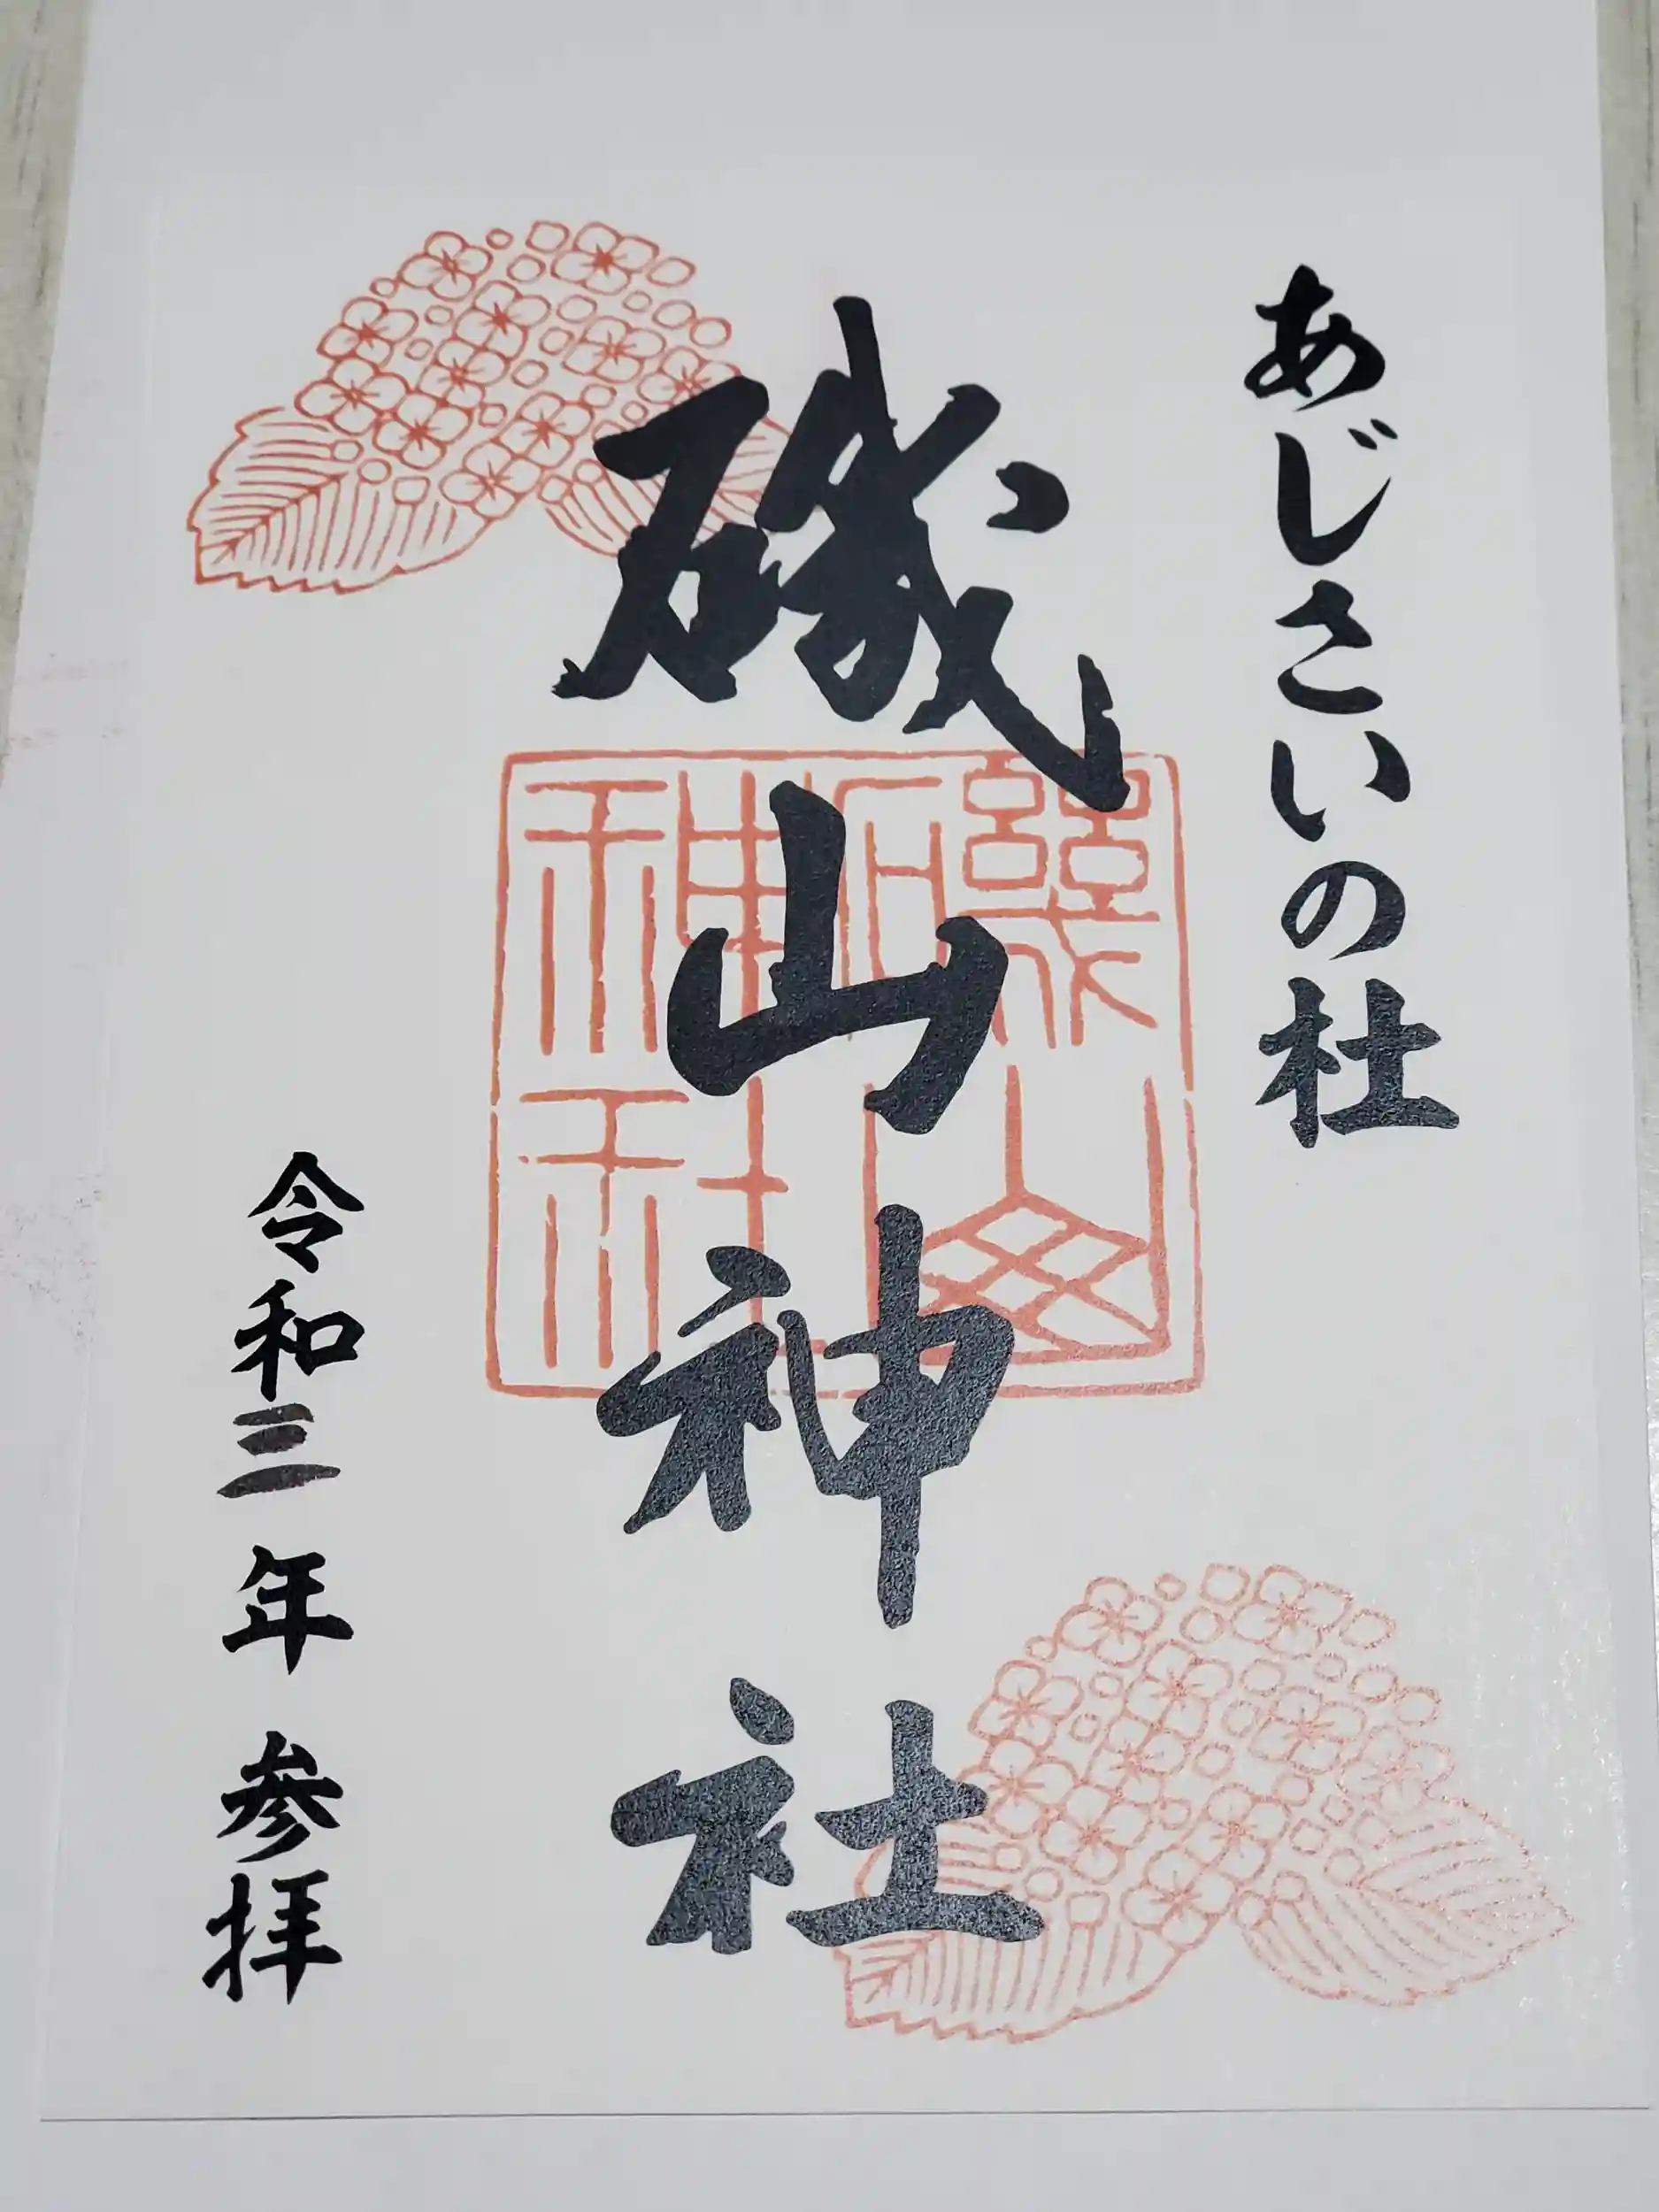 あじさいの杜
磯山神社
磯山神社
令和三年 参拝